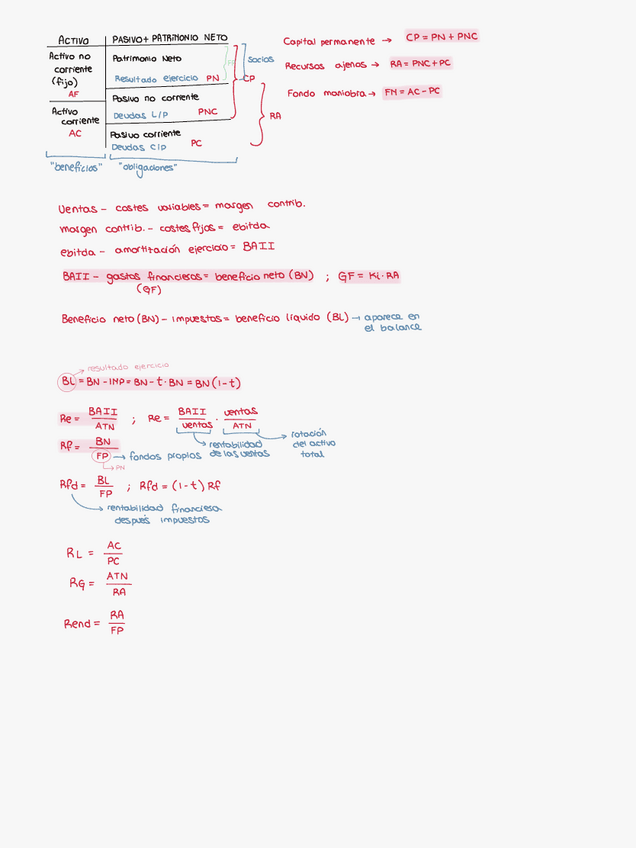 ACTIVO
PASIVO + PATRIMONIO NETO
Activo no
corriente
(fijo)
AF
Patrimonio Neto
Resultado ejercicio PN
Socios
CP
Pasivo no corriente
Deudas L/P PNC
RA
Activo
corriente
AC
Pasivo corriente
Deudas C/P PC
"beneficios" "obligaciones"
Capital permanente → CP = PN + PNC
Recursos ajenos → RA = PNC + PC
Fondo maniobra → FM = AC - PC
Ventas - costes variables = margen contrib.
margen contrib. - costes fijos = ebitda
ebitda - amortización ejercicio = BAII
BAII - gastos financieros = beneficio neto (BN) ; GF = Ki · RA
(GF)
Beneficio neto (BN) - impuestos = beneficio líquido (BL) → aparece en
el balance
resultado ejercicio
BL = BN - IMP = BN - t · BN = BN (1 - t)
Re = BAII / ATN ; Re = BAII / ventas · ventas / ATN
rentabilidad
de las ventas
rotación
del activo
total
Rf = BN / FP → fondos propios
PN
Rfd = BL / FP ; Rfd = (1 - t) Rf
rentabilidad financiera
después impuestos
RL = AC / PC
RG = ATN / RA
Rend = RA / FP